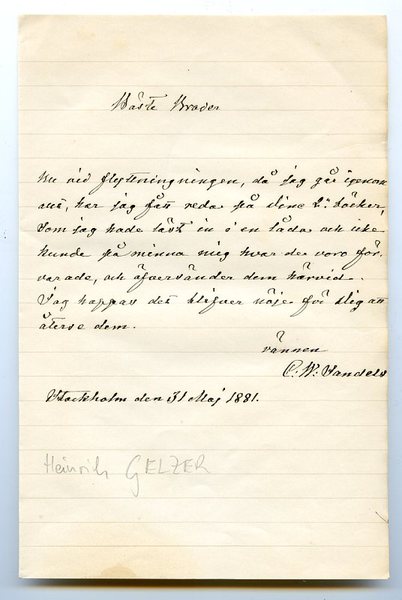 Bäste Broder
Nu vid flyttningningen, då jag går igenom
allt, har jag fått reda på dina 2ne böcker,
som jag hade låst in i en låda och icke
kunde på minna mig hvar de voro för-
varade, och öfversänder dem härvid.
Jag hoppas det blifver nöje för dig att
återse dem.
vännen
C. W.
Stockholm den 31 Maj 1881.
Heinrich GELZER